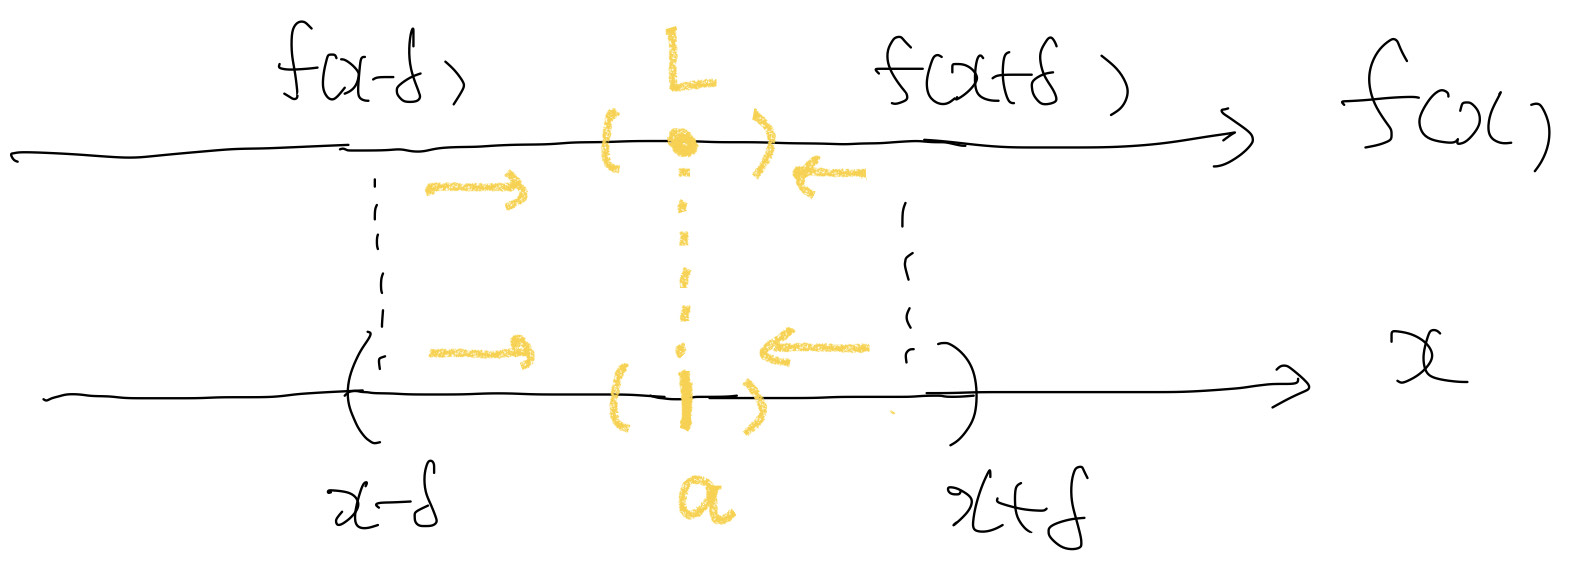 f(x-δ)
L
f(x+δ)
f(x)
( )
( ( ) )
x
x-δ
a
x+δ